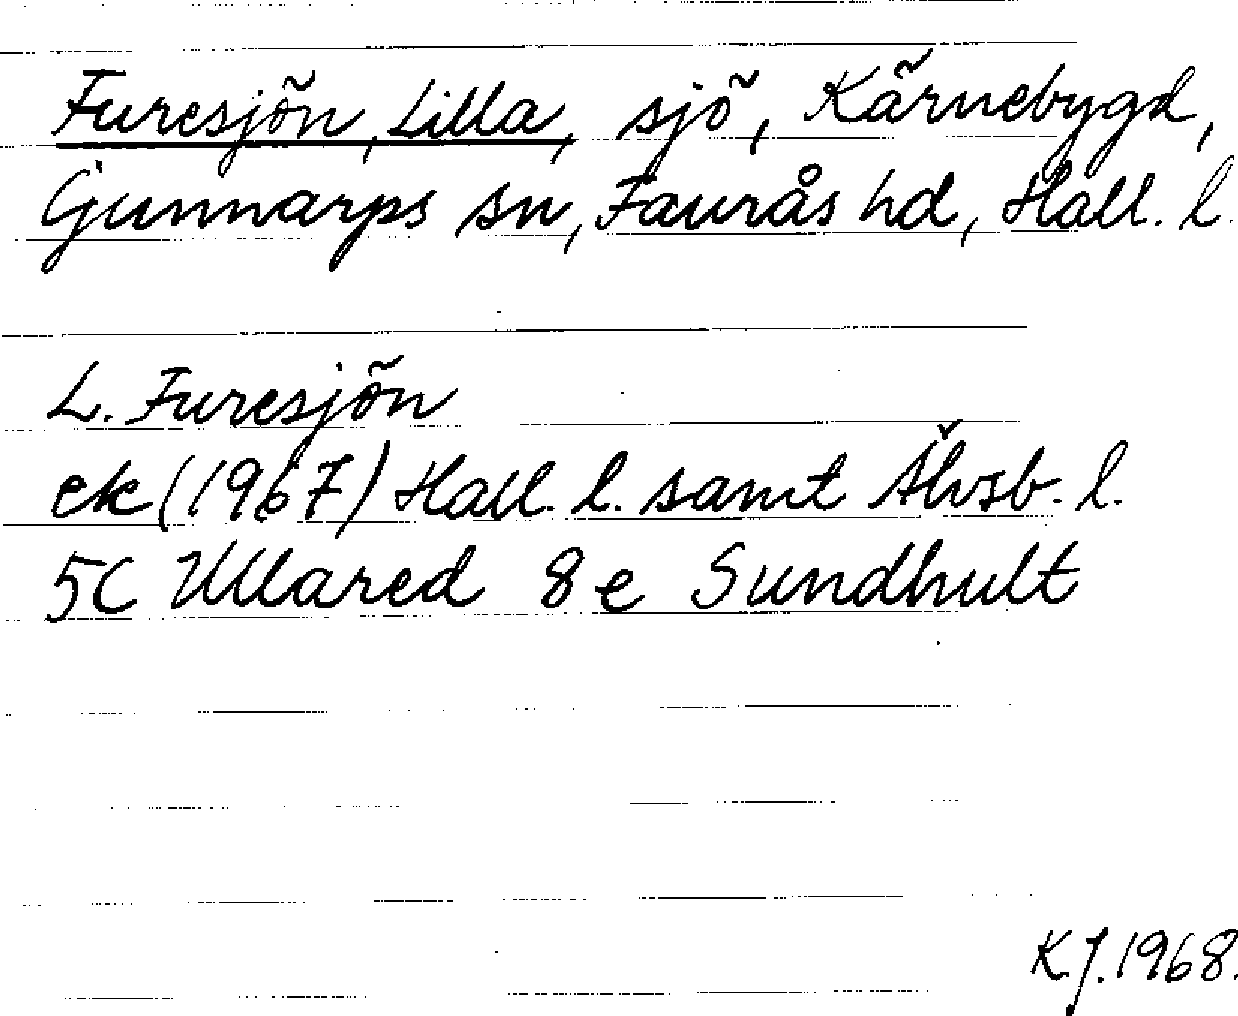 Furesjön, Lilla, sjö, Kärnebygd,
Gunnarps sn, Faurås hd, Hall. l.
L. Furesjön
ek (1967) Hall. l. samt Älvsb. l.
5C Ullared 8e Sundhult
KJ. 1968.